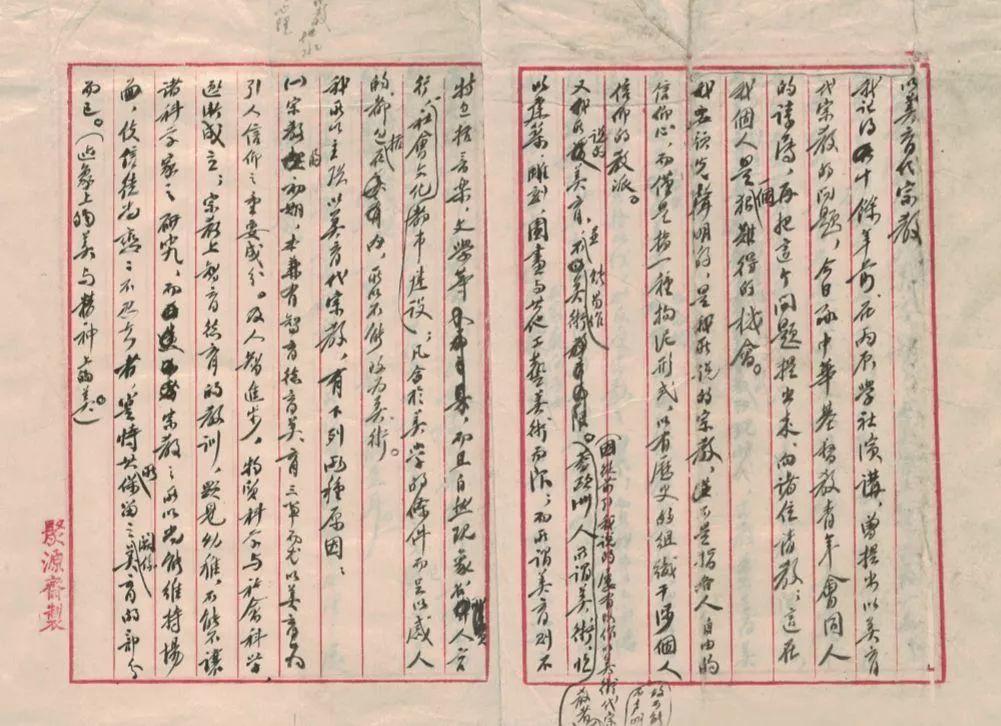 以美育代宗教
我記得十餘年前在丙辰學社演講，曾提出以美育
代宗教的問題，今日承中華基督教青年會同人
的請，再把這个問題提出來，向諸位請教；這在
我個人是個很難得的机會。
我要預先聲明的，是我所說的宗教，並不是指各人自由的
信仰心，而僅是指一種拘泥形式，以有歷史的組織干涉個人
信仰的教派。
又我所說的美育，並不能易作美術。蓋歐洲人所謂美術，恆
因從前引我說的屢有改作以美術代宗教者
以建築、雕刻、圖畫與其他工藝美術為限；而所謂美育則不
特包括音樂、文學等，而且自然現象、名人言
行、社會文化、都市建設，凡合於美學的條件而足以感人
的，都包括在內，所以不能改為美術。
我所以主張以美育代宗教，有下列兩種原因：
(一)宗教的初期，本兼有智育德育美育三事而尤以美育為
引人信仰之重要成分。及人智進步，物質科學與社會科學
逐漸成立；宗教上智育德育的教訓，顯見幼稚，不能不讓
諸科學家之研究，而宗教之所以尚能維持場
面，使信徒尚戀戀不忍去者，實恃其所保留之美育的部分
而已。（迹象上的美與精神上的美。）
聚源齋製